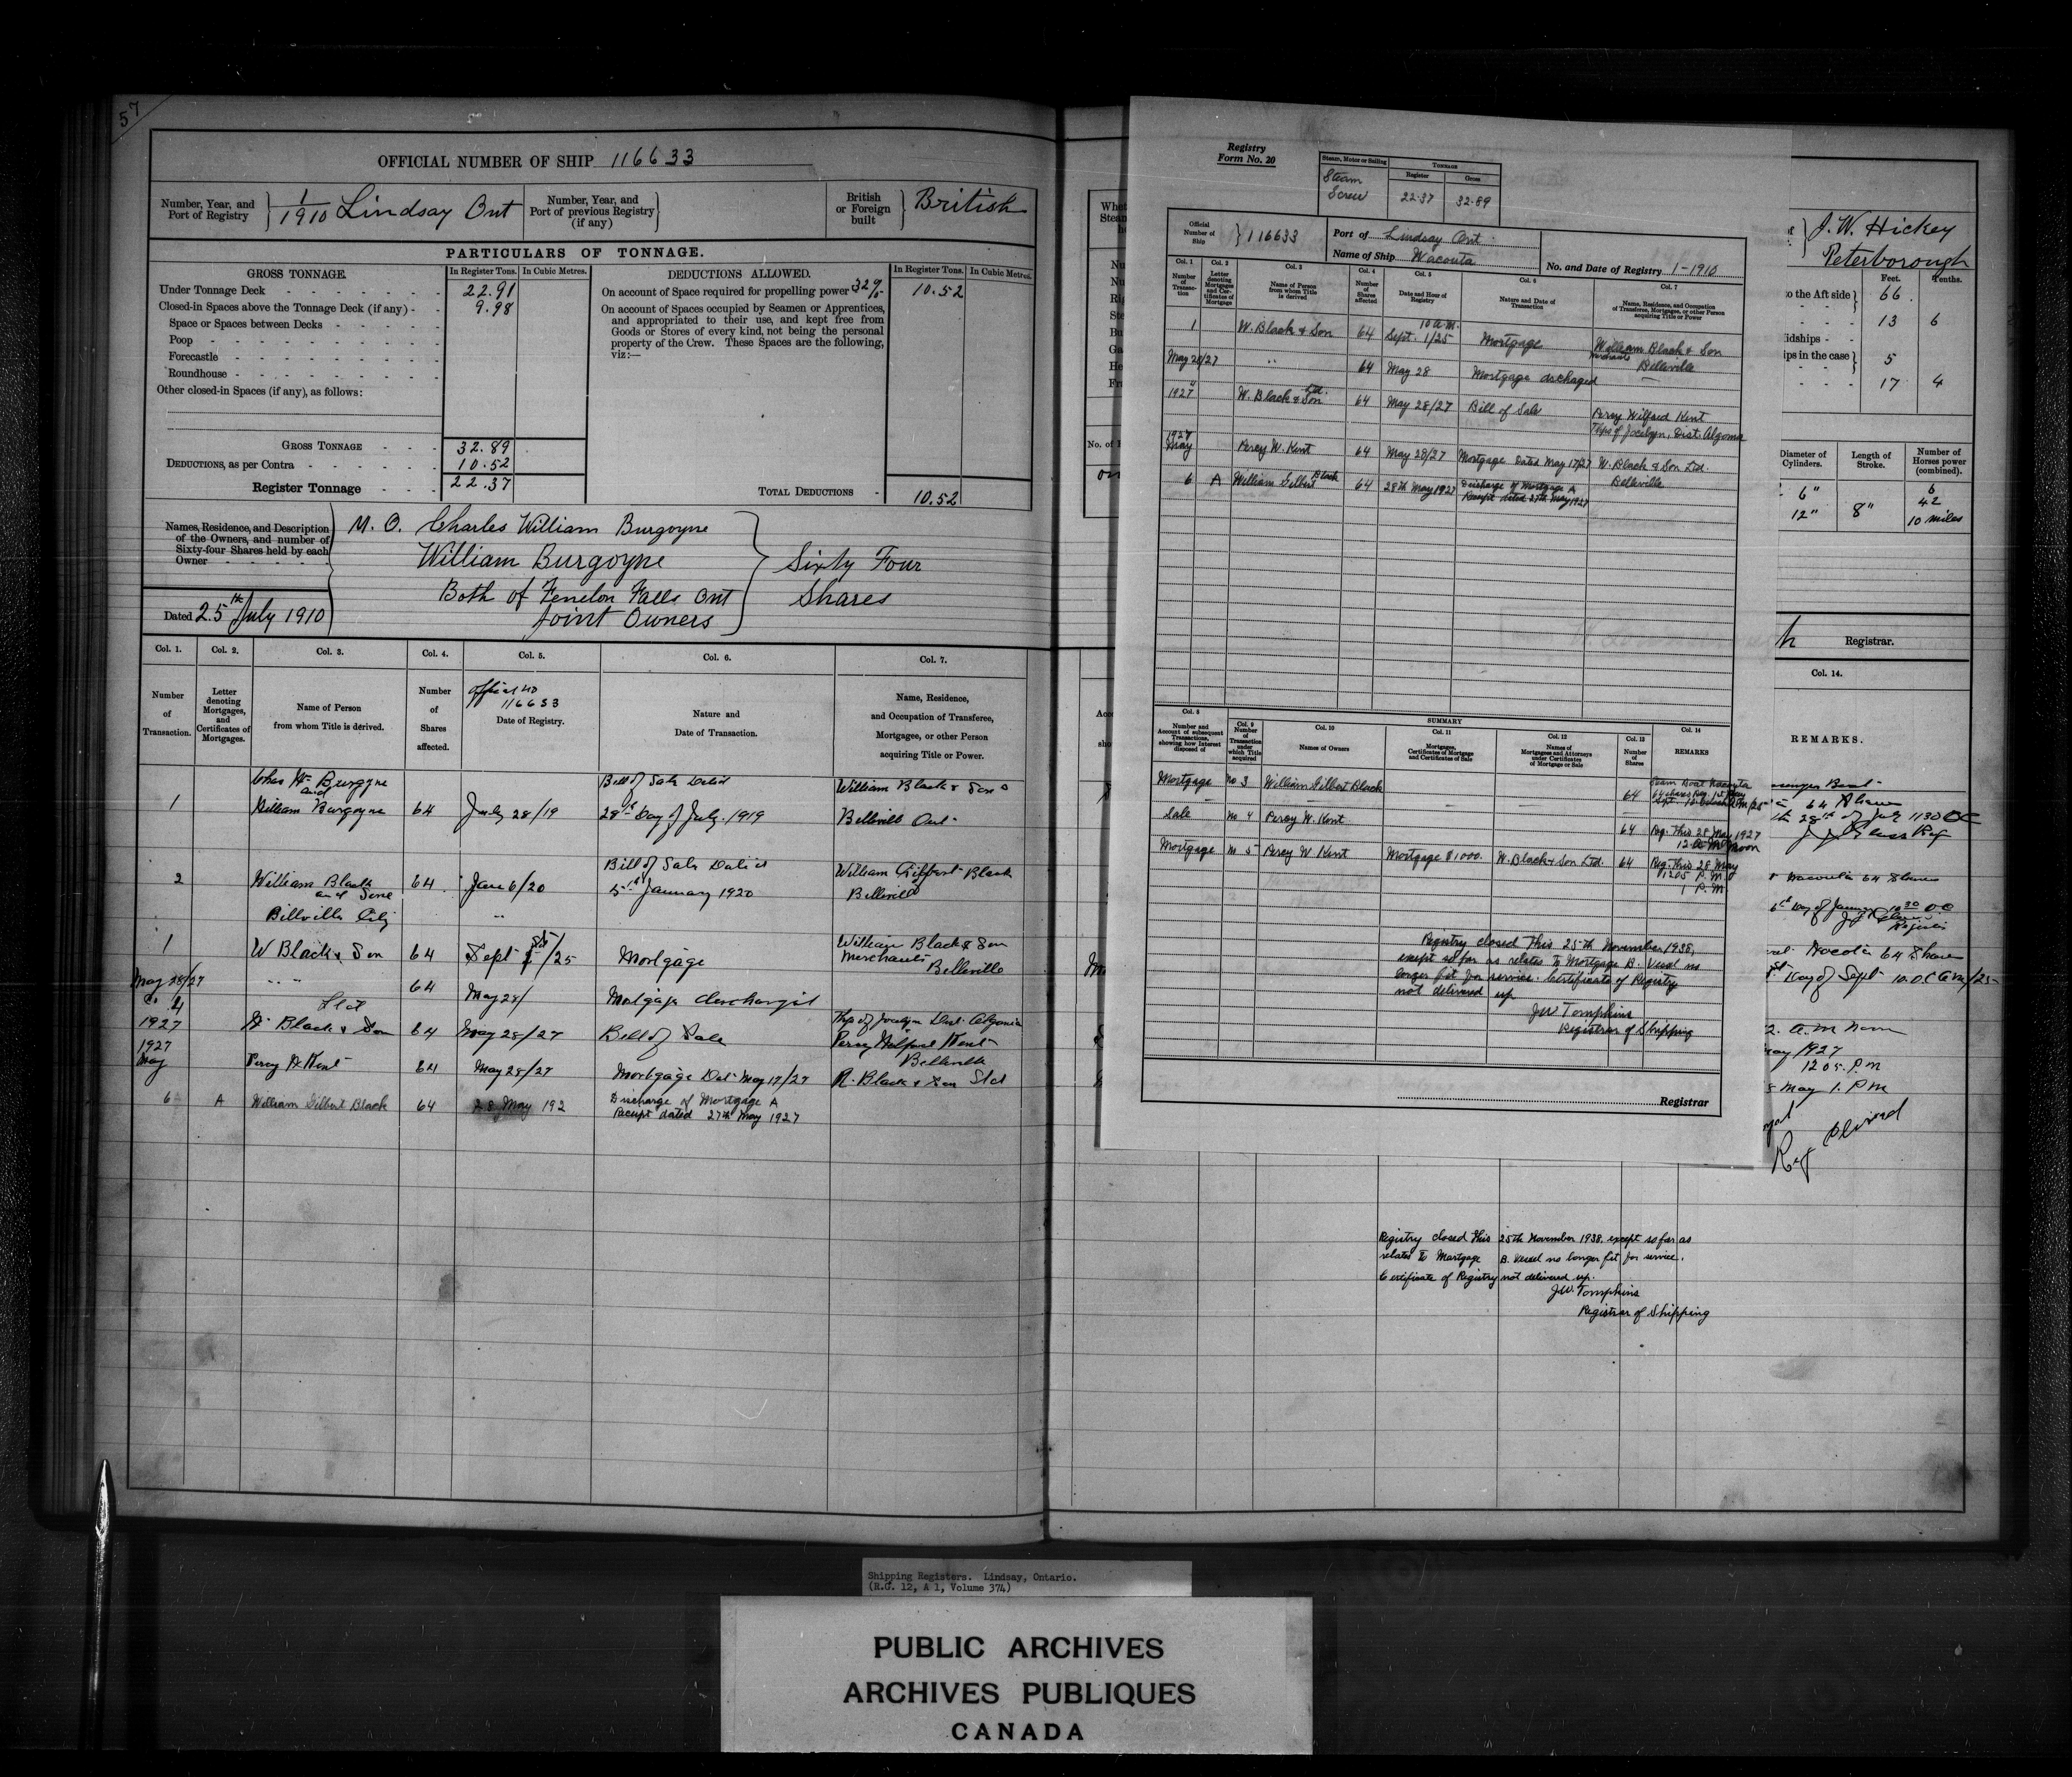 57
OFFICIAL NUMBER OF SHIP 116633
Number, Year, and Port of Registry } 1/1910 Lindsay Ont
Number, Year, and Port of previous Registry (if any) }
British or Foreign built } British
PARTICULARS OF TONNAGE.
GROSS TONNAGE. In Register Tons. In Cubic Metres.
Under Tonnage Deck 22.91
Closed-in Spaces above the Tonnage Deck (if any) 9.98
Space or Spaces between Decks
Poop
Forecastle
Roundhouse
Other closed-in Spaces (if any), as follows:
GROSS TONNAGE 32.89
DEDUCTIONS, as per Contra 10.52
Register Tonnage 22.37
DEDUCTIONS ALLOWED. In Register Tons. In Cubic Metres.
On account of Space required for propelling power 32% 10.52
On account of Spaces occupied by Seamen or Apprentices,
and appropriated to their use, and kept free from
Goods or Stores of every kind, not being the personal
property of the Crew. These Spaces are the following,
viz:—
TOTAL DEDUCTIONS 10.52
Names, Residence, and Description
of the Owners, and number of
Sixty-four Shares held by each
Owner
M. O. Charles William Burgoyne
William Burgoyne
Both of Fenelon Falls Ont
Joint Owners
Sixty Four
Shares
Dated 25th July 1910
Col. 1. Col. 2. Col. 3. Col. 4. Col. 5. Col. 6. Col. 7.
Number of Transaction.
Letter denoting Mortgages, and Certificates of Mortgages.
Name of Person from whom Title is derived.
Number of Shares affected.
Official no 116633
Date of Registry.
Nature and Date of Transaction.
Name, Residence, and Occupation of Transferee, Mortgagee, or other Person acquiring Title or Power.
Chas Wm Burgyne Bill of Sale Dated William Black & Son
and
1 William Burgyne 64 July 28/19 28th Day of July. 1919 Belleville Ont
Bill of Sale Dated William Gilbert Black
2 William Black 64 Jan 6/20 5th January 1920 Belleville
and Sone
Billville City "
1 W Black & Son 64 Sept 1st/25 Mortgage William Black & Son
Merchants Belleville
May 28/27 " " 64 May 28/ Mortgage discharged
4 Ltd
1927 W. Black & Son 64 May 28/27 Bill of Sale Twp of Jocelyn Dist Algoma
Percy Wilfred Kent
1927 Belleville
May Percy W Kent 64 May 28/27 Mortgage Dat May 17/27 W. Black & Son Ltd
6 A William Gilbert Black 64 28 May 192 Discharge of Mortgage A
Receipt dated 27th May 1927
Registry
Form No. 20
Steam, Motor or Sailing TONNAGE
Register Gross
Steam Screw 22.37 32.89
Official Number of Ship } 116633
Port of Lindsay Ont
Name of Ship Wacouta
No. and Date of Registry 1-1910
Col. 1 Col. 2 Col. 3 Col. 4 Col. 5 Col. 6 Col. 7
Number of Transaction
Letter denoting Mortgages and Certificates of Mortgage
Name of Person from whom Title is derived
Number of Shares affected
Date and Hour of Registry
Nature and Date of Transaction
Name, Residence, and Occupation of Transferee, Mortgagee, or other Person acquiring Title or Power
10 a.m.
1 W. Black & Son 64 Sept. 1/25 Mortgage William Black & Son
Merchants Belleville
May 28/27 " 64 May 28 Mortgage dschaged —
4
1927 W. Black & Son Ltd. 64 May 28/27 Bill of Sale Percy Wilfred Kent
Twp of Jocelyn, Dist. Algoma
1927
May Percy W. Kent 64 May 28/27 Mortgage Dated May 17/27 W. Black & Son Ltd.
Belleville
6 A William Gilbert Black 64 28th May 1927 Discharge of Mortgage A
Receipt dated 27th May 1927
Col. 8 SUMMARY
Number and Account of subsequent Transactions, showing how Interest disposed of
Col. 9 Number of Transaction under which Title acquired
Col. 10 Names of Owners
Col. 11 Mortgages, Certificates of Mortgage and Certificates of Sale
Col. 12 Names of Mortgagees and Attorneys under Certificates of Mortgage or Sale
Col. 13 Number of Shares
Col. 14 REMARKS
Mortgage no 3 William Gilbert Black 64 Steam Boat Wacouta
64 shares Reg. 1st Day
Sale no 4 Percy W. Kent 64 Reg. This 28 May 1927
Mortgage no 5 Percy W Kent Mortgage $1000. W. Black & Son Ltd. 64 Reg. This 28 May
1205 P.M
1 P.M
Registry closed this 25th November 1938,
except so far as relates to Mortgage B. Vessel no
longer fit for service. Certificate of Registry
not delivered up
JW Tompkins
Registrar of Shipping
Registrar
J. W. Hickey
Peterborough
Feet. Tenths.
to the Aft side } 66.
13 6
idships
ps in the case } 5
17 4
Diameter of Cylinders. Length of Stroke. Number of Horses power (combined).
6" 8" 6
12" 42
10 miles
Registrar.
Col. 14.
REMARKS.
64 Shares
28th of July 1130
Wacouta 64 Shares
6th Day of January 10 30
64 Shares
Day of Sept 10.O.C a m/25
a.m Noon
May 1927
1205. P.M
May 1. P M
Reg closed
Registry closed this 25th November 1938, except so far as
relates to Mortgage B. Vessel no longer fit for service.
Certificate of Registry not delivered up.
JW. Tompkins
Registrar of Shipping
Shipping Registers. Lindsay, Ontario.
(R.G. 12, A 1, Volume 374)
PUBLIC ARCHIVES
ARCHIVES PUBLIQUES
CANADA